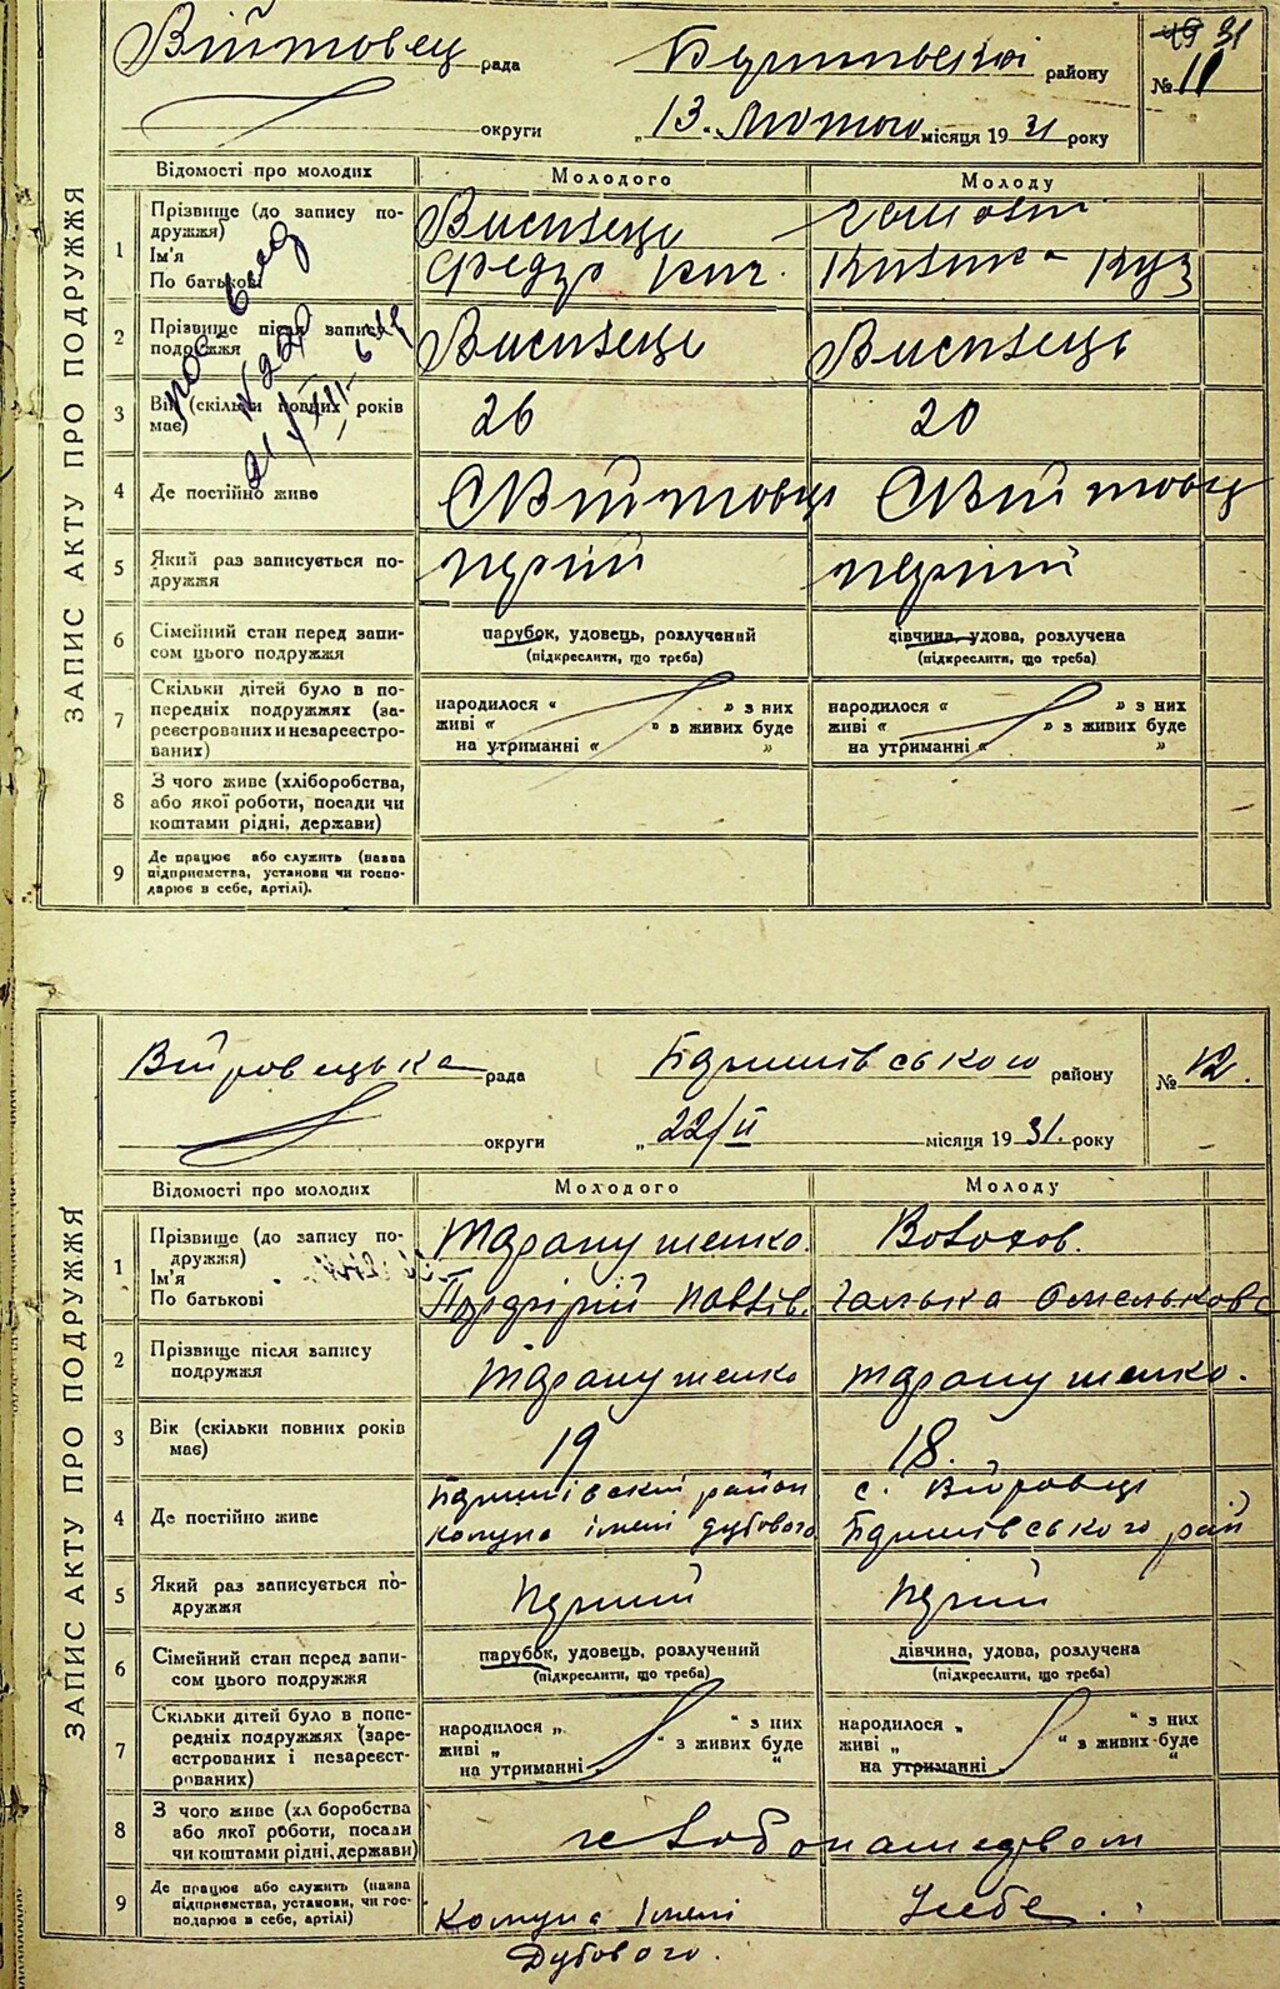 ЗАПИС АКТУ ПРО ПОДРУЖЖЯ
31
Війтовец рада району № 11
округи „13. Лютого місяця 19 31 року
Відомості про молодих Молодого Молоду
1 Прізвище (до запису подружжя)
Ім'я
По батькові
Висівець
Федір
2 Прізвище після запису подружжя
Висівець Висівець
№ 220
21/XII-
3 Вік (скільки повних років має) 26 20
4 Де постійно живе С Війтовці С Війтовці
5 Який раз записується подружжя перший перший
6 Сімейний стан перед записом цього подружжя
парубок, удовець, розлучений дівчина, удова, розлучена
(підкреслити, що треба) (підкреслити, що треба)
7 Скільки дітей було в попередніх подружжях (зареєстрованих и незареєстрованих)
народилося « » з них народилося « » з них
живі « » в живих буде живі « » з живих буде
на утриманні « » на утриманні « »
8 З чого живе (хліборобства, або якої роботи, посади чи коштами рідні, держави)
9 Де працює або служить (назва підприємства, установи чи господарює в себе, артілі).
ЗАПИС АКТУ ПРО ПОДРУЖЖЯ
рада району № 12.
округи „22/II місяця 19 31. року
Відомості про молодих Молодого Молоду
1 Прізвище (до запису подружжя)
Ім'я
По батькові
Таранушенко. Волохов.
Галька Омельков
2 Прізвище після запису подружжя
Таранушенко Таранушенко.
3 Вік (скільки повних років має) 19 18.
4 Де постійно живе
район с.
комуна імені Дубового рай
5 Який раз записується подружжя Перший Перший
6 Сімейний стан перед записом цього подружжя
парубок, удовець, розлучений дівчина, удова, розлучена
(підкреслити, що треба) (підкреслити, що треба)
7 Скільки дітей було в попередніх подружжях (зареєстрованих і незареєстрованих)
народилося „ “ з них народилося „ “ з них
живі „ “ з живих буде живі „ “ з живих буде
на утриманні „ “ на утриманні „ “
8 З чого живе (хл боробства або якої роботи, посади чи коштами рідні, держави)
хлібопашеством
9 Де працює або служить (назва підприємства, установи, чи господарює в себе, артілі)
Комуна Імені
Дубового.
У себе.